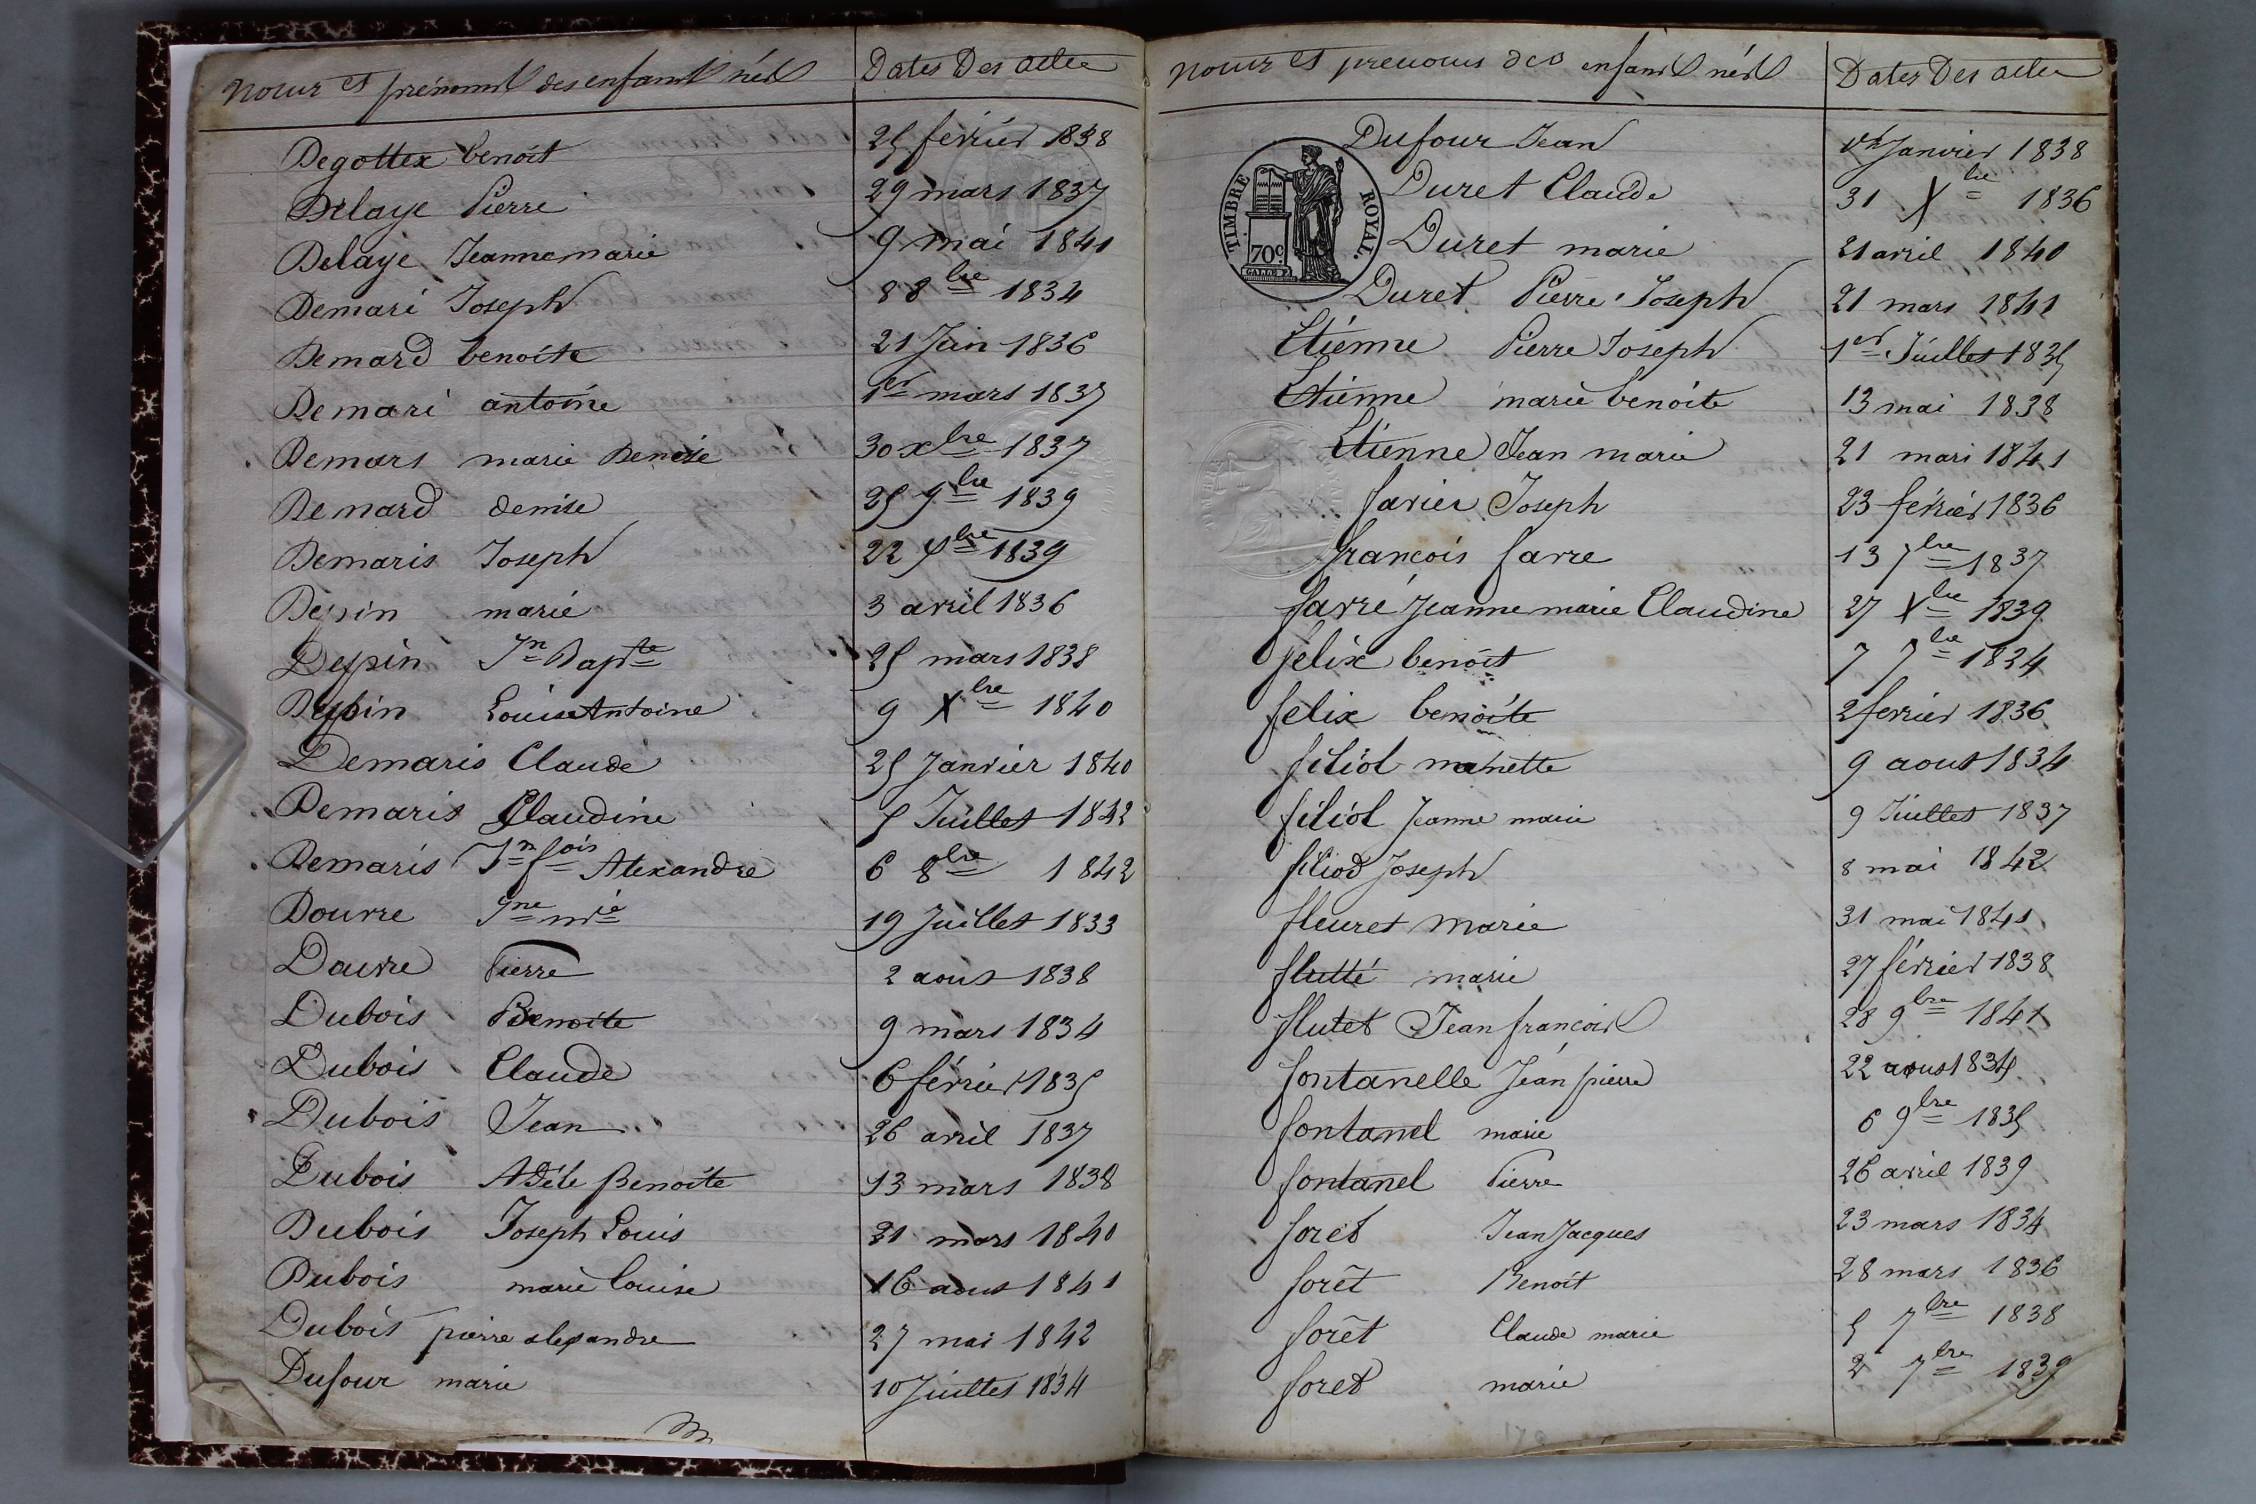 Noms et prénoms des enfants nés
Dates Des actes
Degottex benoit
25 février 1838
Delaye Pierre
29 mars 1837
Delaye Jeanne marie
9 mai 1841
Demari Joseph
8 8bre 1834
Demard benoite
21 Juin 1836
Demari antoine
1er mars 1837
Demars marie Denise
30 xbre 1837
Demard denise
25 9bre 1839
Demaris Joseph
22 Xbre 1839
Depin marie
3 avril 1836
Depin Jn Bapte
25 mars 1838
Depin Louise Antoine
9 Xbre 1840
Demaris Claude
25 Janvier 1840
Demaris Claudine
5 Juillet 1842
Demaris Jn fois Alexandre
6 8bre 1842
Dourre Jne mie
19 Juillet 1833
Dourre Pierre
2 aout 1838
Dubois Benoite
9 mars 1834
Dubois Claude
6 février 1835
Dubois Jean
26 avril 1837
Dubois Adèle Benoite
13 mars 1838
Dubois Joseph Louis
31 mars 1840
Dubois marie louise
16 aout 1841
Dubois pierre alexandre
27 mai 1842
Dufour marie
10 Juillet 1834
Noms et prenoms des enfants nés
Dates Des actes
TIMBRE ROYAL.
70c.
Dufour Jean
Janvier 1838
Duret Claude
31 Xbre 1836
Duret marie
21 avril 1840
Duret Pierre Joseph
21 mars 1841
Etiénne Pierre Joseph
1er Juillet 1835
Etiénne marie benoite
13 mai 1838
Etienne Jean marie
21 mars 1841
favier Joseph
23 février 1836
françois favre
13 7bre 1837
favre Jeanne marie Claudine
27 Xbre 1839
felix benoit
7 7bre 1834
felix benoite
2 fevrier 1836
filiol mahette
9 aout 1834
filiol Jeanne marie
9 Juillet 1837
filiod Joseph
8 mai 1842
fleuret marie
31 mai 1841
flutté marie
27 février 1838
flutet Jean françois
28 9bre 1841
fontanelle Jean pierre
22 aout 1834
fontanel marie
6 9bre 1835
fontanel Pierre
26 avril 1839
foret Jean Jacques
23 mars 1834
forêt Benoit
28 mars 1836
forêt Claude marie
5 7bre 1838
foret marie
2 7bre 1839